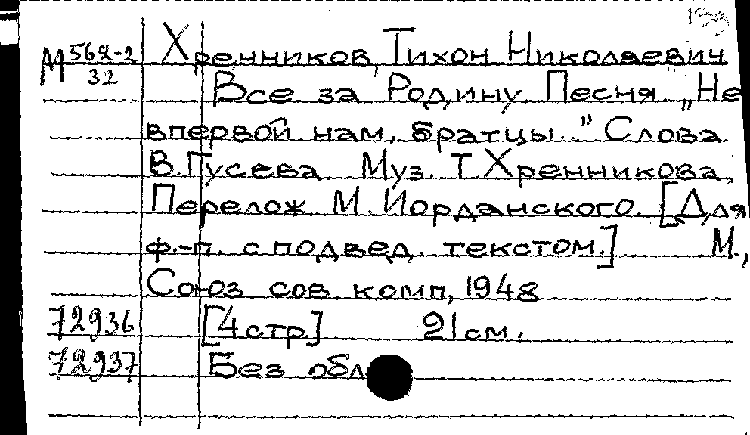 М 568-2
32
Хренников, Тихон Николаевич
Все за Родину. Песня „Не
впервой нам, братцы..." Слова
В. Гусева Муз. Т. Хренникова.
Перелож М. Иорданского. [Для
ф.-п. с подвед. текстом.] М.,
Союз сов комп, 1948
72936 [4 стр.] 21 см.
72937 Без обл